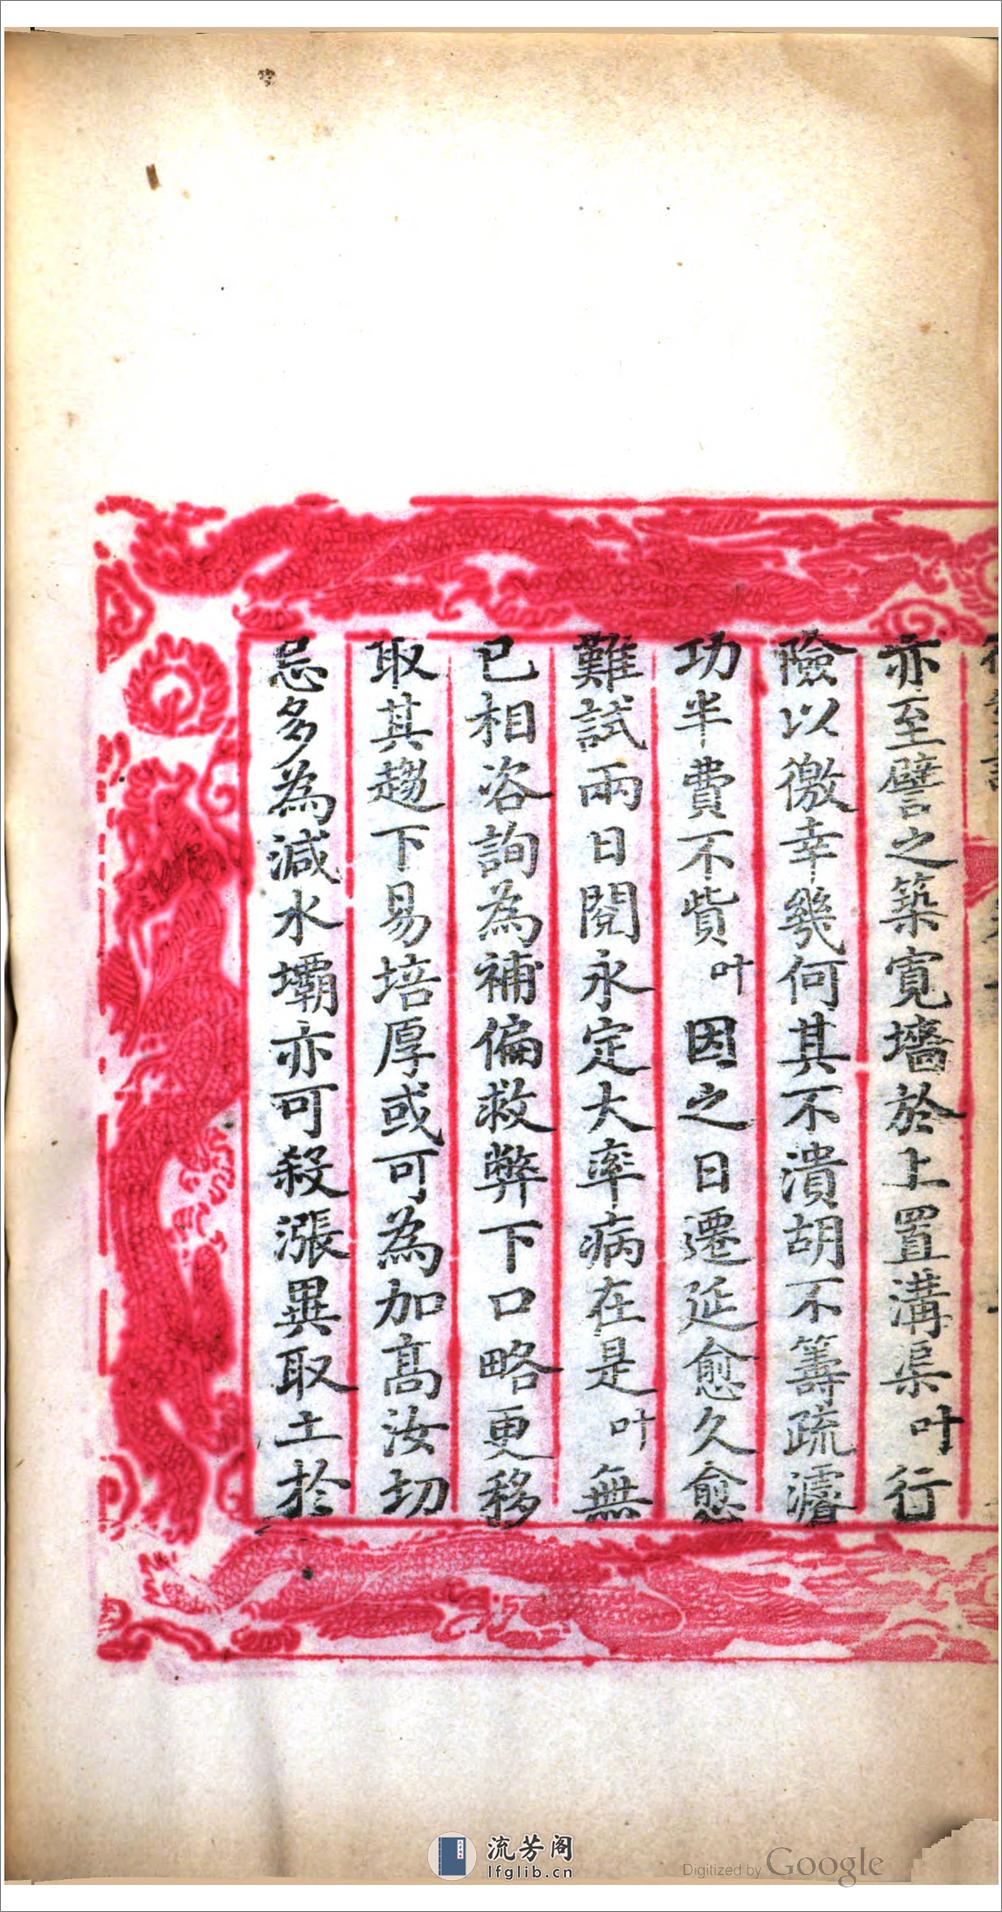 亦至譬之築寬墻於上置溝渠叶行
險以徼幸幾何其不潰胡不籌疏濬
功半費不貲叶因之日遷延愈久愈
難試兩日閱永定大率病在是叶無
已相咨詢為補偏救弊下口略更移
取其趨下易培厚或可為加高汝切
忌多為減水壩亦可殺漲異取土於
流芳阁
lfglib.cn
Digitized by Google